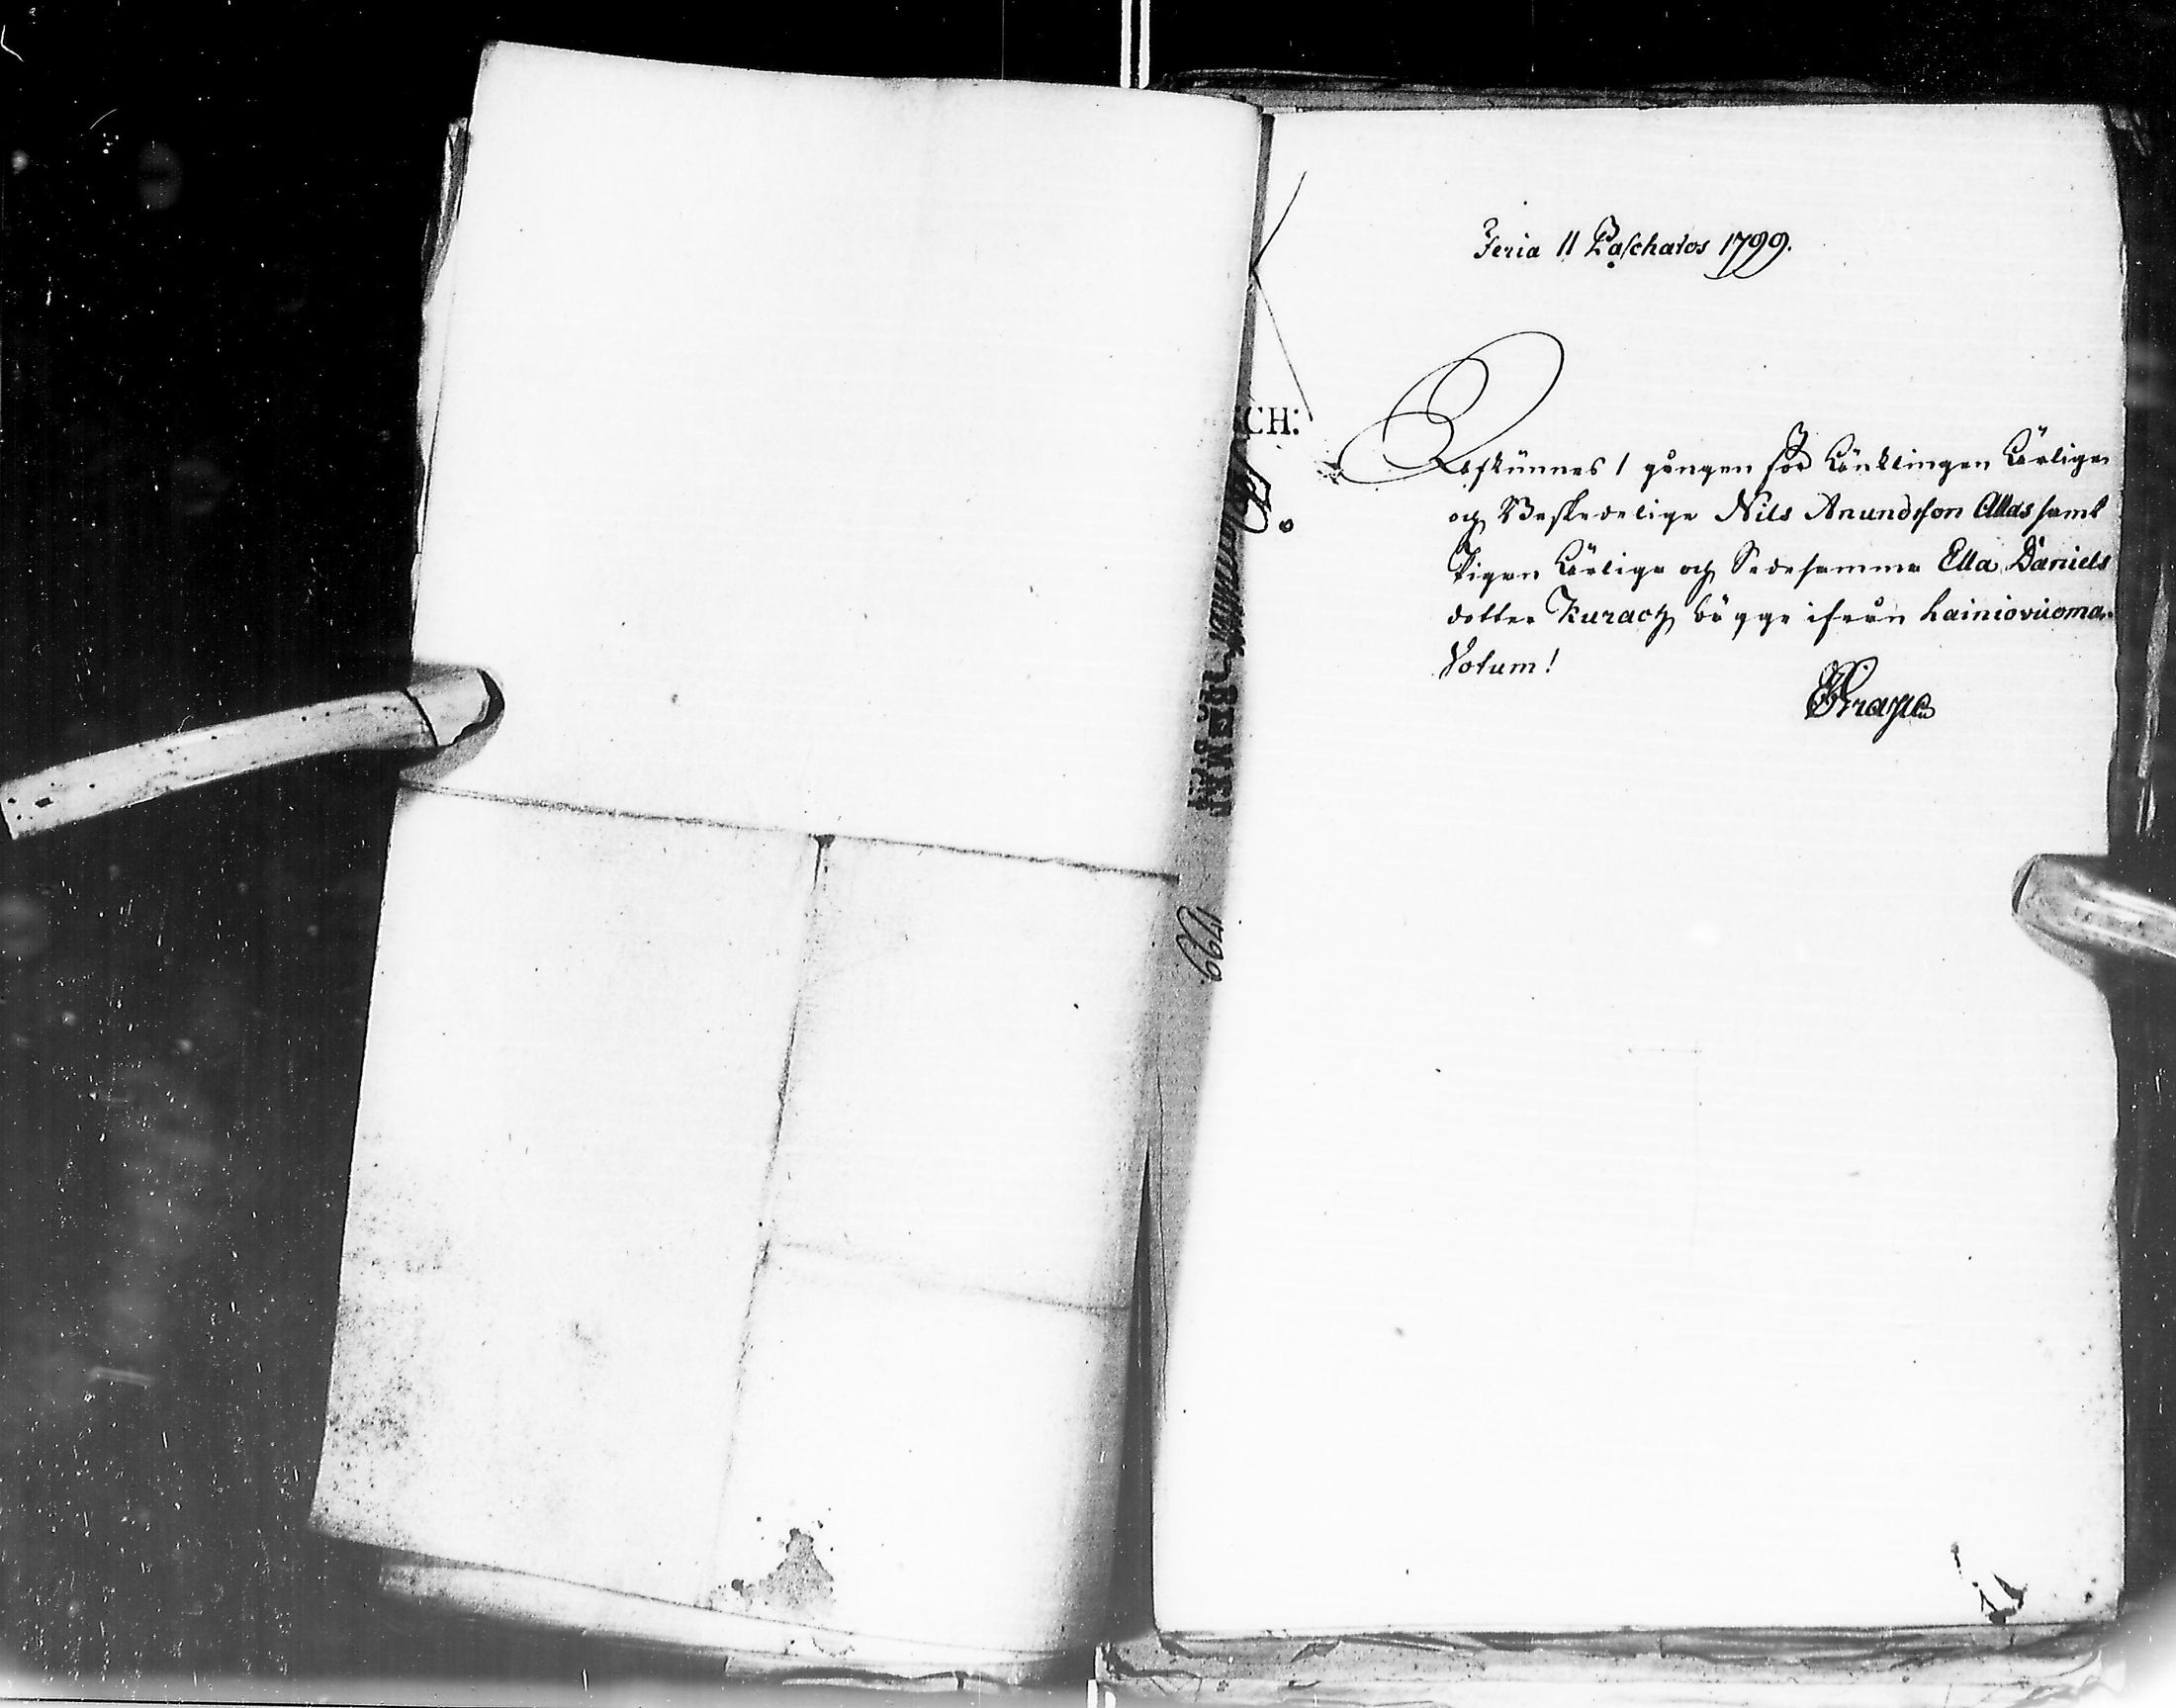 Feria II Paschatos 1799.
CH:
Afkunnes 1 gången för Ynklingen Ärlige
och Beskedelige Nils Anundsson Allas samt
Pigan Ärliga och Sedesamma Ella Daniels
dotter Kurack bägge ifrån Lainiovuoma.
Votum!
1799.